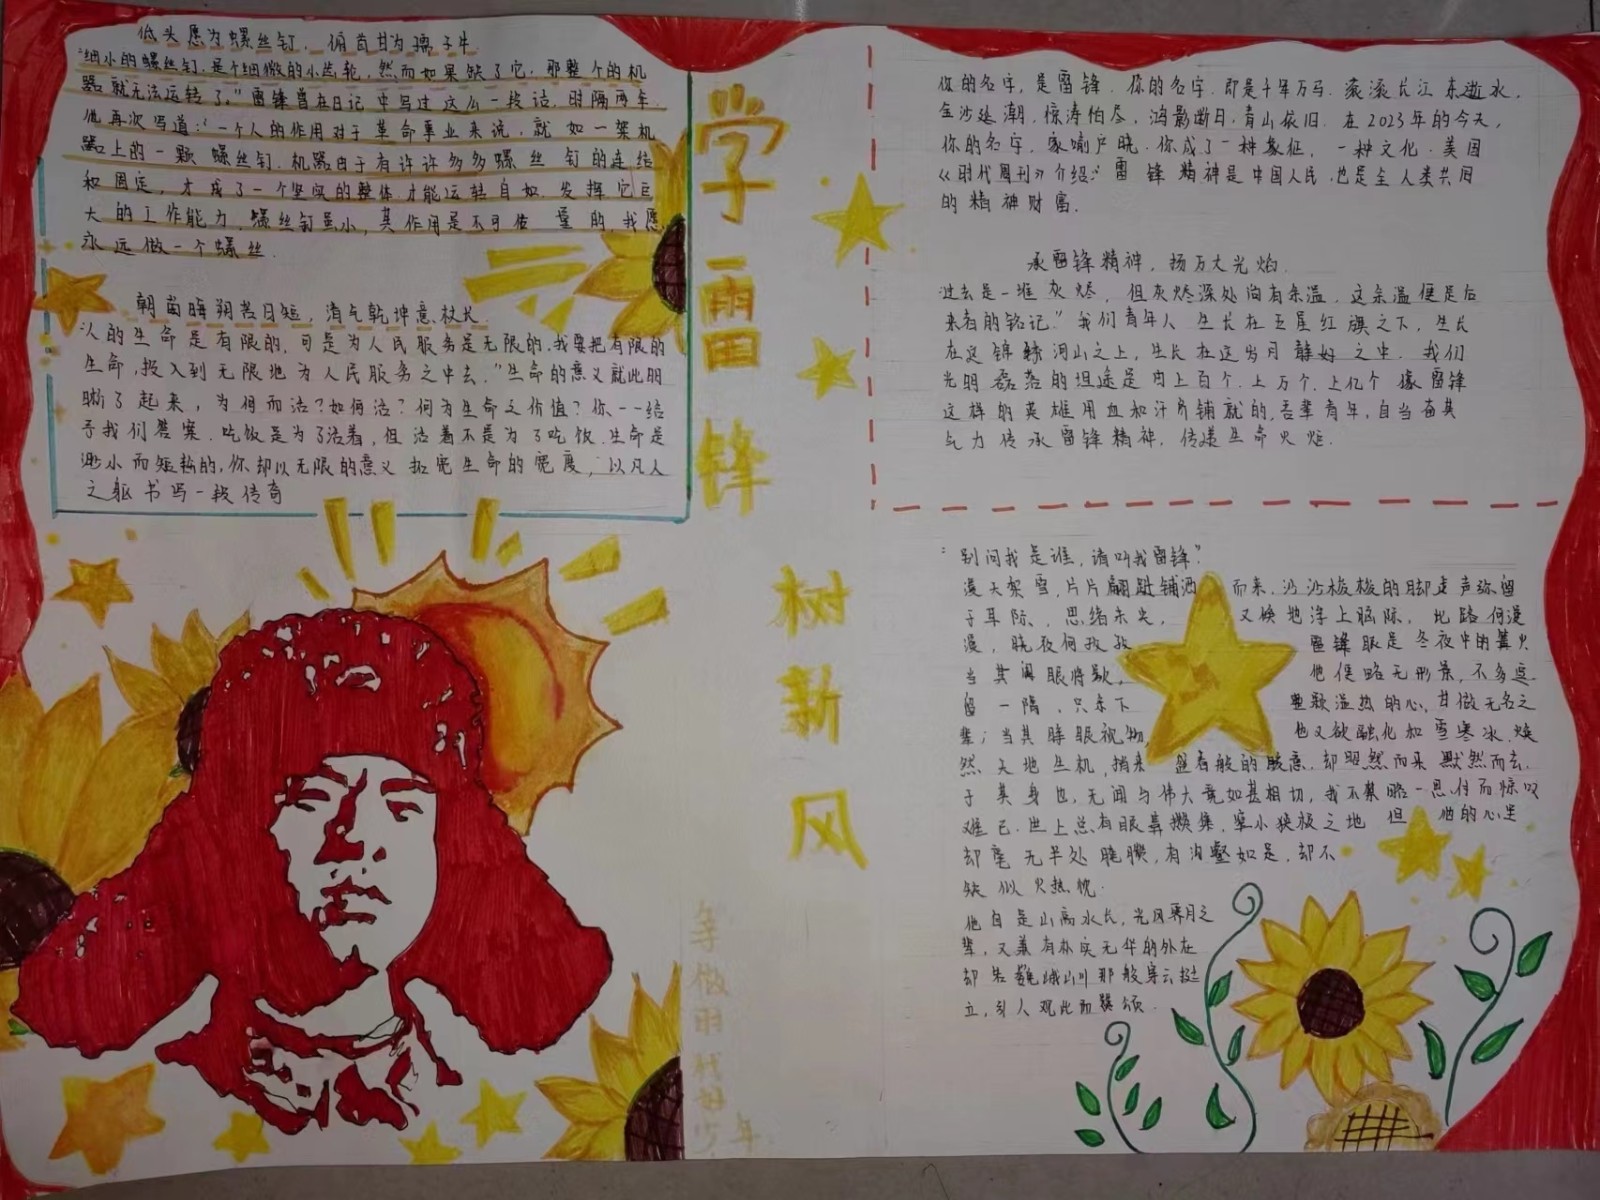 低头愿为螺丝钉，俯首甘为孺子牛
"细小的螺丝钉，是个细微的小齿轮，然而如果缺了它，那整个的机
器就无法运转了。"雷锋曾在日记中写过这么一段话，时隔两年
他再次写道："一个人的作用对于革命事业来说，就如一架机
器上的一颗螺丝钉.机器由于有许许多多螺丝钉的连结
和固定，才成了一个坚实的整体才能运转自如，发挥它巨
大的工作能力，螺丝钉虽小，其作用是不可估量的，我愿
永远做一个螺丝.
朝菌晦朔苦日短，清气乾坤意枝长.
"人的生命是有限的，可是为人民服务是无限的，我要把有限的
生命，投入到无限地为人民服务之中去。"生命的意义就此明
晰了起来，为何而活？如何活？何为生命之价值？你一一给
予我们答案，吃饭是为了活着，但活着不是为了吃饭.生命是
渺小而短暂的，你却以无限的意义拓宽生命的宽度，以凡人
之躯书写一段传奇
学雷锋
树新风
争做时代好少年
你的名字，是雷锋.你的名字.即是千军万马.滚滚长江东逝水，
金沙处潮，惊涛怕尽，鸿影断日，青山依旧.在2023年的今天，
你的名字，家喻户晓.你成了一种象征，一种文化.美国
《时代周刊》介绍："雷锋精神是中国人民，也是全人类共同
的精神财富.
承雷锋精神，扬万丈光焰.
过去是一堆灰烬，但灰烬深处尚有余温，这余温便是后
来者的铭记."我们青年人生长在五星红旗之下，生长
在这锦绣河山之上，生长在这岁月静好之中.我们
光明磊落的坦途是由上百个.上万个.上亿个像雷锋
这样的英雄用血和汗所铺就的，吾辈青年，自当奋其
气力传承雷锋精神.传递生命火炬.
"别问我是谁，请听我雷锋"
漫天架雪，片片翩跹铺洒而来，沙沙梭梭的脚走声弥留
于耳际，思绪未尖，又倏地浮上脑际，此路何漫
漫，晓夜何孜孜雷锋眼是冬夜中的篝火
当其阖眼将歇，他便略无形景，不多逗
留一隅，只余下颗温热的心，甘做无名之
辈；当其睁眼视物，他又欲融化和雪寒冰，焕
然天地生机，捎来盎春般的暖意，却翌然而来默然而去，
于其身也，无闻与伟大竟如甚相切，我不禁略一思忖而惊叹
难已.世上总有眼鼻攒集，窄小狭极之地但他的心里
却毫无半处腌臜，有沟壑如是，却不
缺似火热忱.
他自是山高水长，光风霁月之
辈，又兼有朴实无华的外在
却若巍峨山川那般穿云挺
立，引人观此而器颂.